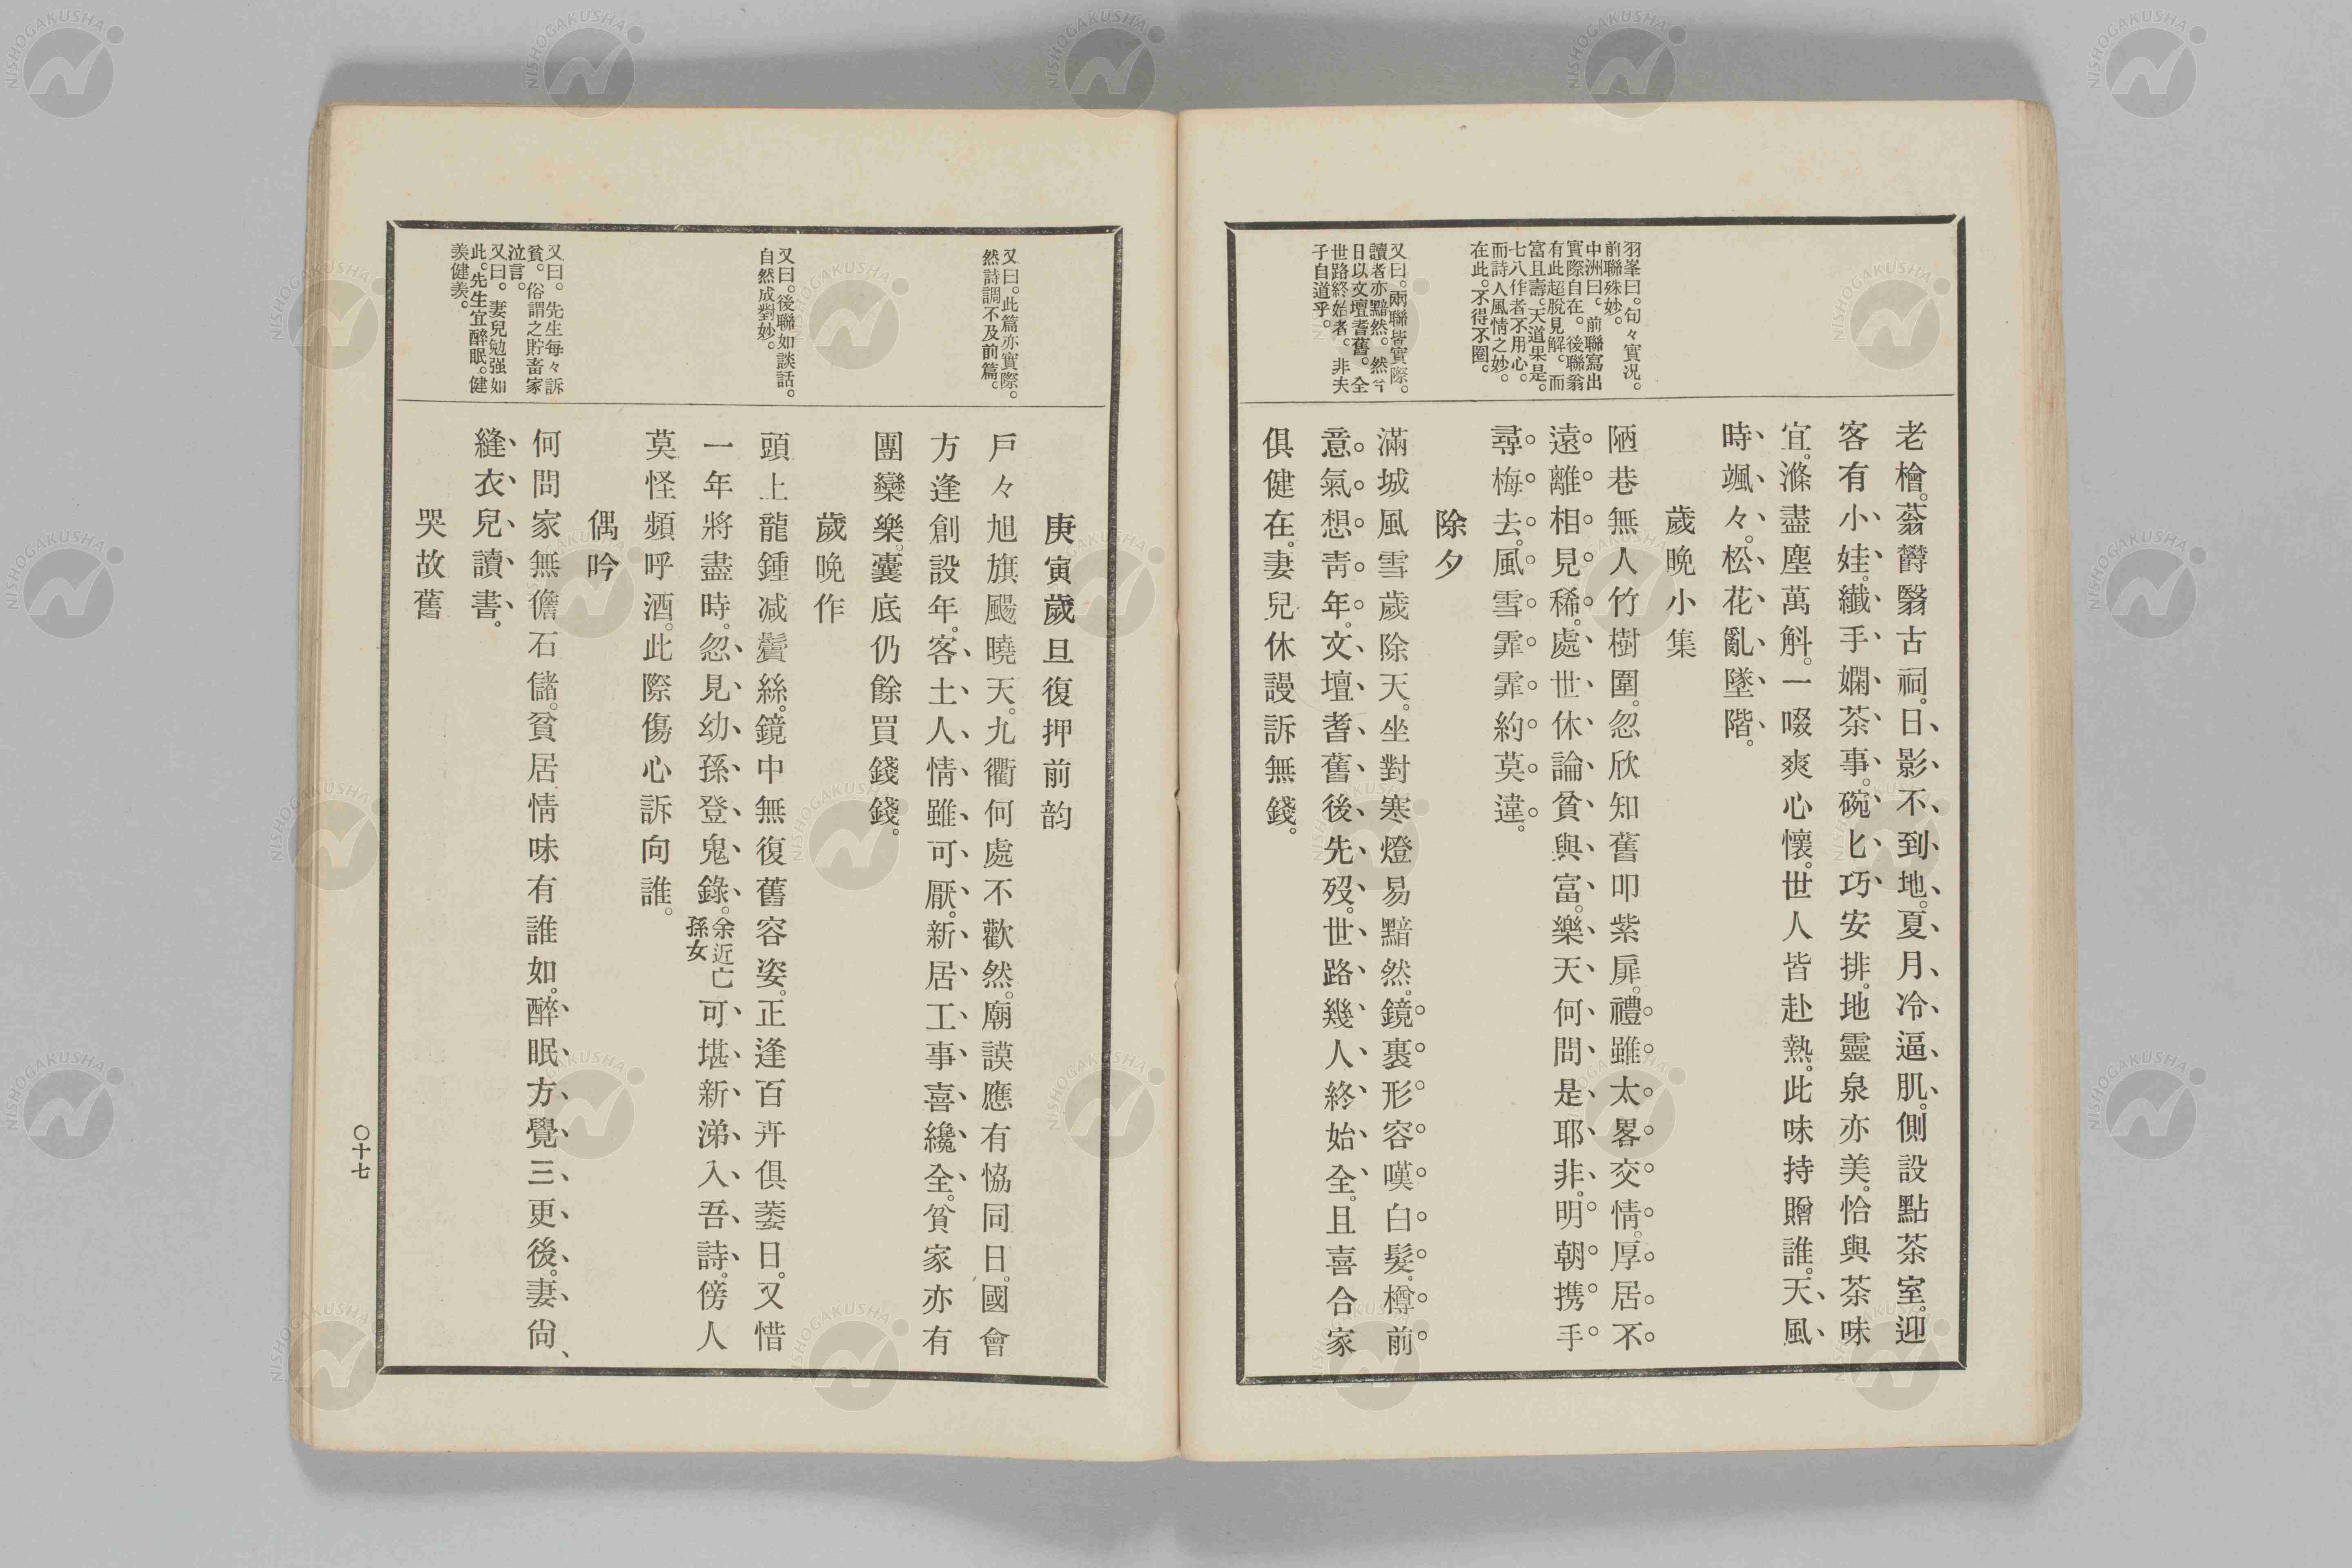 羽峯曰。句々實况。
前聯殊妙。
中洲曰。前聯寫出
實際自在。後聯翁
有此超脫見解。而
富且壽。天道果是。
七八作者不用心。
而詩人風情之妙。
在此。不得不圈。
又曰。兩聯皆實際。
讀者亦黯然。然今
日以文壇耆舊。全
世路終始者。非夫
子自道乎。
老檜。蓊欝翳古祠。日影不到地。夏月冷逼肌。側設點茶室。迎
客有小娃。纖手嫻茶事。碗匕巧安排。地靈泉亦美。恰與茶味
宜。滌盡塵萬斛。一啜爽心懷。世人皆赴熱。此味持贈誰。天風
時颯々。松花亂墜階。
歲晩小集
陋巷無人竹樹圍。忽欣知舊叩紫扉。禮雖太畧交情厚。居不
遠離相見稀。處世休論貧與富。樂天何問是耶非。明朝携手
尋梅去。風雪霏霏約莫違。
除夕
滿城風雪歲除天。坐對寒燈易黯然。鏡裏形容嘆白髮。樽前
意氣想靑年。文壇耆舊後先歿。世路幾人終始全。且喜合家
俱健在。妻兒休謾訴無錢。
又曰。此篇亦實際。
然詩調不及前篇。
又曰。後聯如談話。
自然成對妙。
又曰。先生每々訴
貧。俗謂之貯畜家
泣言。
又曰。妻兒勉强如
此。先生宜醉眠。健
羨健羨。
庚寅歲旦復押前韵
戶々旭旗颺曉天。九衢何處不歡然。廟謨應有恊同日。國會
方逢創設年。客土人情雖可厭。新居工事喜纔全。貧家亦有
團欒樂。囊底仍餘買錢錢。
歲晩作
頭上龍鍾减鬢絲。鏡中無復舊容姿。正逢百卉俱萎日。又惜
一年將盡時。忽見幼孫登鬼錄。余近亡孫女可堪新涕入吾詩。傍人
莫怪頻呼酒。此際傷心訴向誰。
偶吟
何問家無儋石儲。貧居情味有誰如。醉眠方覺三更後。妻尙
縫衣兒讀書。
哭故舊
〇十七
NISHOGAKUSHA